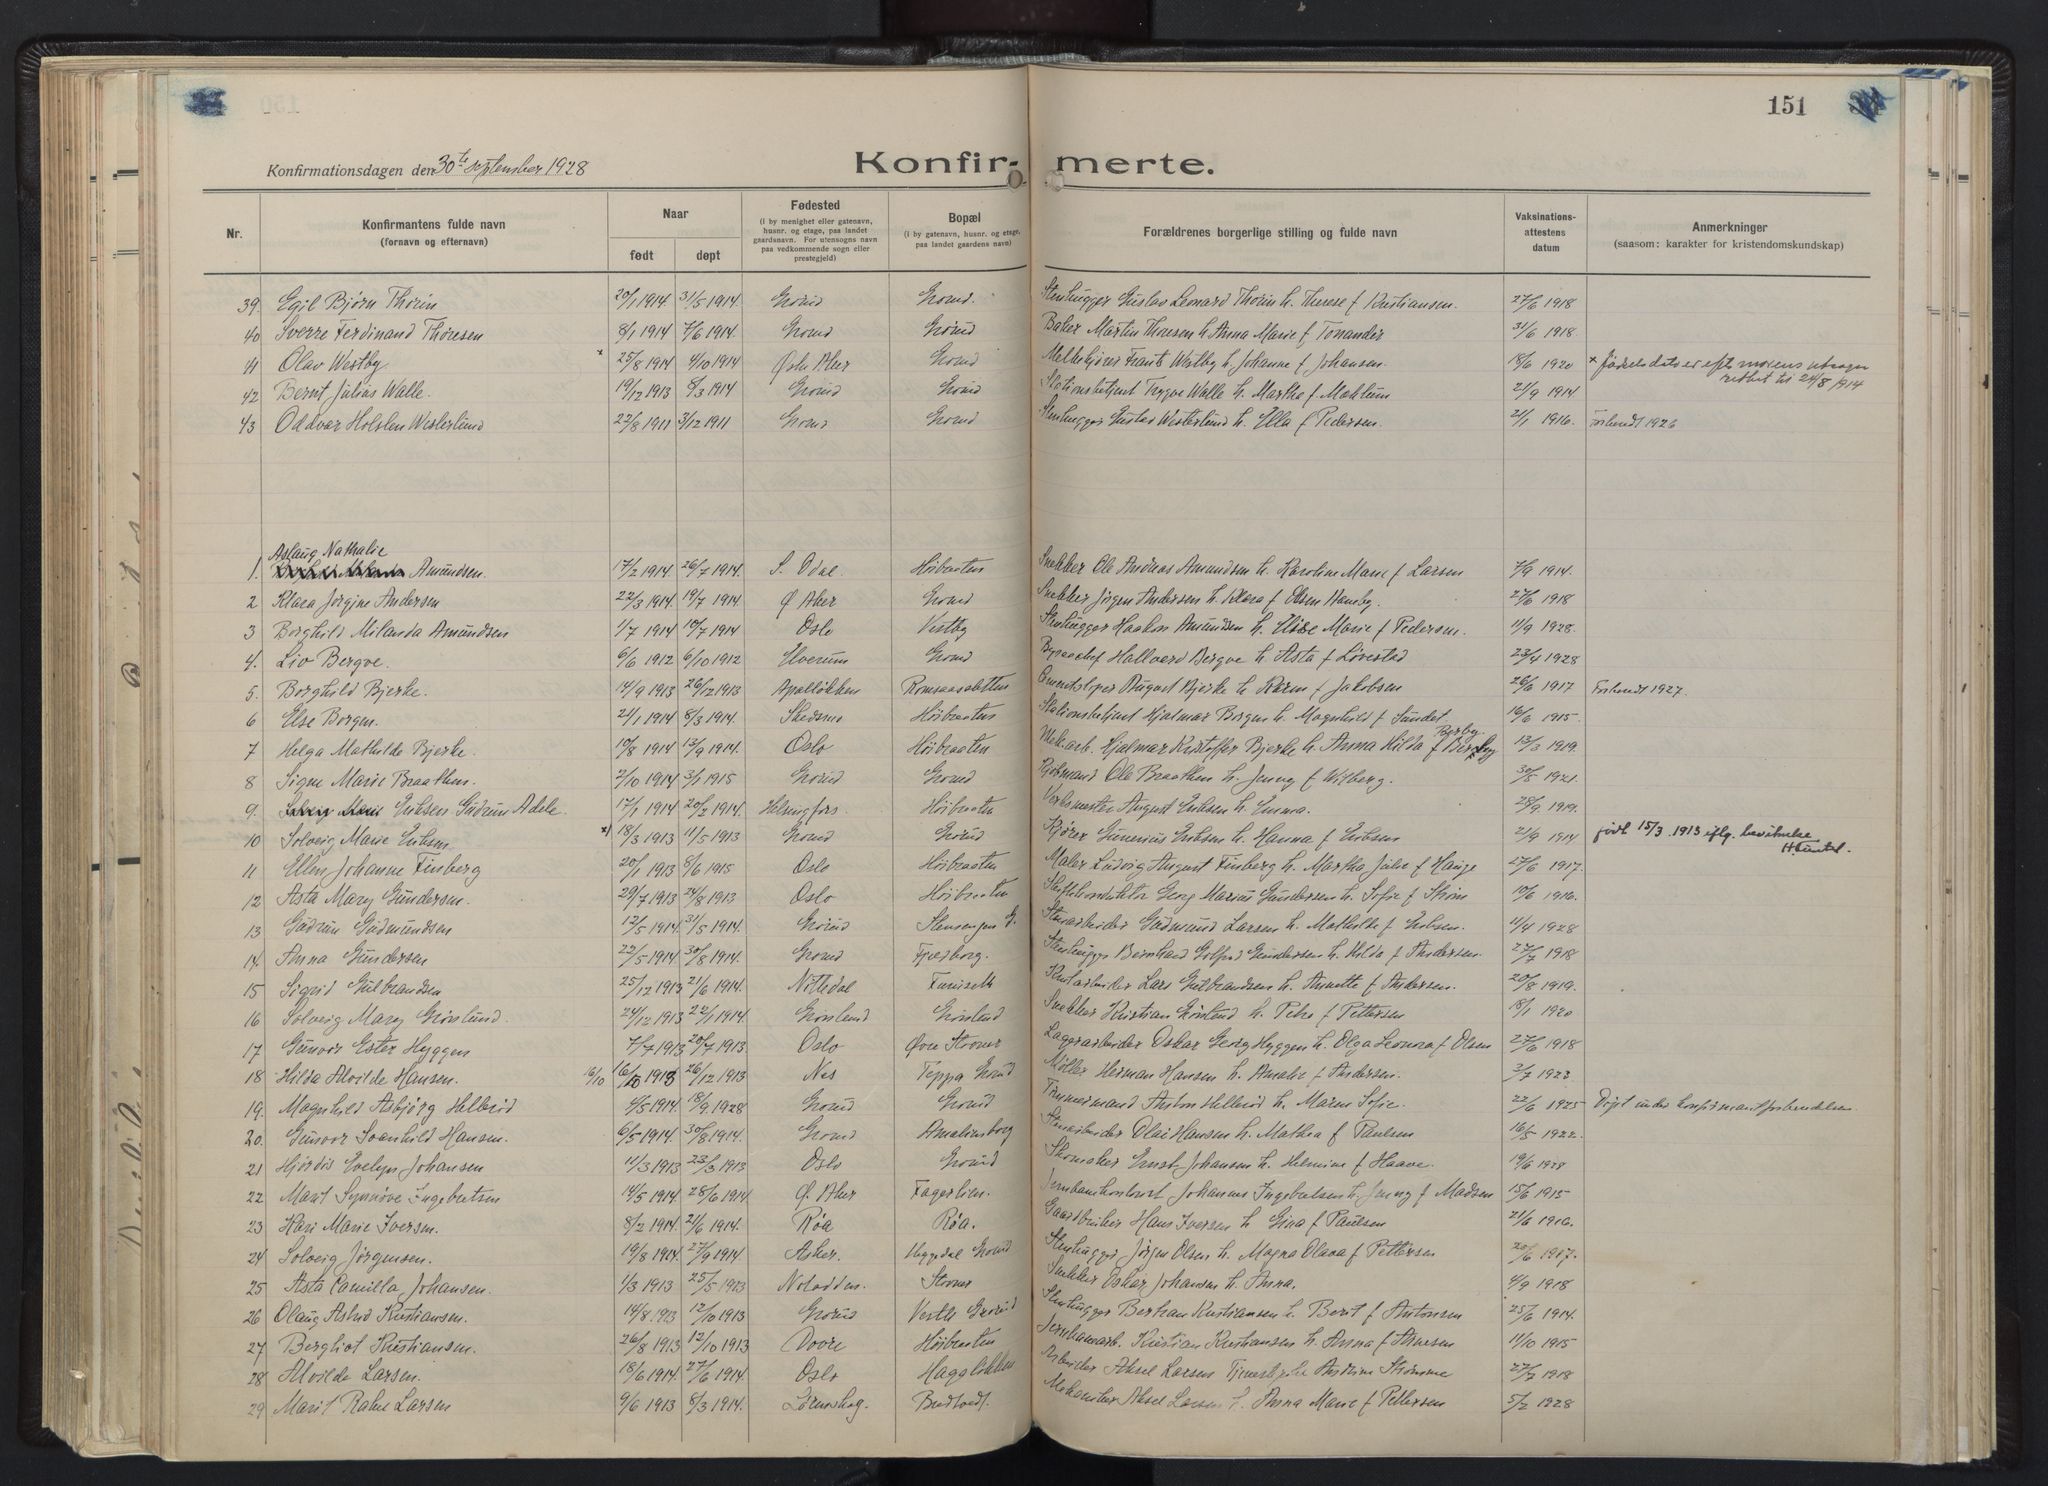 151
Konfirmationsdagen den 30te september 1928
Konfir- merte.
Nr.
Konfirmantens fulde navn
(fornavn og efternavn)
Naar
født
døpt
Fødested
(i by menighet eller gatenavn, husnr. og etage, paa landet gaardsnavn. For utensogns navn paa vedkommende sogn eller prestegjeld)
Bopæl
(i by gatenavn, husnr. og etage, paa landet gaardens navn)
Forældrenes borgerlige stilling og fulde navn
Vaksinations-attestens datum
Anmerkninger
(saasom: karakter for kristendomskundskap)
39. Egil Bjørn Thorin 20/1 1914 31/5 1914. Grorud Grorud. Stenhugger Gustav Leonard Thorin h. Therese f Kristiansen. 27/6 1918
40 Sverre Ferdinand Thoresen 8/1 1914 7/6 1914. Grorud Grorud Baker Martin Thoresen h. Anna Marie f Tonander 31/6 1918
41 Olav Westby x 25/8 1914 4/10 1914 Østre Aker Grorud Melkekjører Frants Westby h. Johanne f Johansen. 18/6 1920 x fødselsdato er efter morens utsagn
rettet til 24/8 1914
42 Bernt Julius Walle. 19/12 1913 8/3 1914 Grorud Grorud Stationsbetjent Trygve Walle h. Martha f Mohlum 21/9 1914
43 Oddvar Holsten Westerlund 22/8 1911 3/12 1911 Grorud Grorud Stenhugger Gustav Westerlund h. Ella f Pedersen. 21/1 1916. Forhendt 1926
Aslaug Nathalie
1. Amundsen. 17/2 1914. 26/7 1914. S. Odal. Høibraaten Snekker Ole Andreas Amundsen h. Karoline Marie f Larsen 7/9 1914.
2 Klara Jørgine Andersen 22/3 1914. 19/7 1914. Ø Aker Grorud Snekker Jørgen Andersen h. Klara f Olsen Hamby. 27/6 1918
3 Borghild Milanda Amundsen 1/7 1914 10/7 1914 Oslo Vestby Stenhugger Haakon Amundsen h. Elise Marie f Pedersen. 11/9 1928.
4. Liv Bergve. 6/6 1912 6/10 1912 Elverum Grorud Hallvard Bergve h. Asta f Løvestad 23/4 1928
5. Borghild Bjerke. 14/9 1913 26/12 1913 Apalløkken Romsaassletten August Bjerke h. Karen f Jakobsen 26/6 1917 Forhendt 1927.
6 Else Borgen. 21/1 1914 8/3 1914. Skedsmo Høibraaten Stationsbetjent Hjalmar Borgen h. Magnhild f Sundet 16/6 1915.
7 Helga Mathilde Bjerke. 10/8 1914 13/9 1914. Oslo Høibraaten Mek.arb. Hjalmar Kristoffer Bjerke h. Anna Hilda f Berby 13/3 1919.
8 Signe Marie Braathen. 2/10 1914 3/1 1915 Grorud Grorud Kjøbmand Ole Braathen h. Jenny f Wiberg. 30/5 1921.
9. Eriksen Gudrun Adele. 17/1 1914 20/2 1914. Helsingfors. Høibraaten Verksmester August Eriksen h. Emma. 28/9 1919.
10 Solveig Marie Eriksen x) 18/3 1913 11/5 1913 Grorud Grorud Kjører Gunerius Eriksen h. Hanna f Eriksen 21/9 1914 født 15/3. 1913 iflg. bevitnelse
11 Ellen Johanne Finberg 20/1 1913 8/6 1915 Oslo Høibraaten Maler Ludvig August Finberg h. Martha Julie f Hauge 27/6 1917.
12 Asta Mary Gundersen. 29/7 1913 24/8 1913 Oslo Høibraaten Georg Marius Gundersen h. Sofie f Strøm 10/6 1916.
13 Gudrun Gudmundsen 12/5 1914. 31/5 1914. Grorud Stensengen G. Stenarbeider Gudmund Larsen h. Mathilde f Eriksen. 11/4 1928
14. Anna Gundersen 22/5 1914. 30/8 1914. Grorud Fjeldborg. Stenhugger Bernhard Golfred Gundersen h. Hilda f Andersen. 27/7 1918
15 Sigrid Gulbrandsen 25/12 1913 21/6 1914. Nittedal Furuseth Lars Gulbrandsen h. Annette f Andersen. 20/8 1919.
16 Solveig Mary Grønlund. 24/12 1913 22/1 1914. Grønlund Grønlund Snekker Kristian Grønlund h. Petra f Pettersen 18/1 1920
17 Gunvor Ester Hyggen 7/7 1913 20/7 1913. Oslo Øvre Stovner Lagerarbeider Oskar Georg Hyggen h. Olga Leonora f Olsen 27/6 1918
18 Hilda Alvilde Hansen. 16/10 16/10 1913 26/12 1913 Nes Teppa Grorud Møller Herman Hansen h. Amalie f Andersen. 3/7 1923
19. Magnhild Asbjørg Hellerud 4/5 1914. 18/9 1928 Grorud Grorud Tømmermand Anton Hellerud h. Maren Sofie. 22/6 1925 Døpt under konfirmantforberedelsen.
20. Gunvor Svanhild Hansen. 6/5 1914. 30/8 1914. Grorud Amalienborg Stenarbeider Olai Hansen h. Mathea f Paulsen 16/5 1922.
21 Hjørdis Evelyn Johansen 11/3 1913 23/3 1913 Oslo Grorud Skomaker Ernst Johansen h. Helmine f Haave. 19/6 1928
22 Marit Synnøve Ingebretsen 14/5 1914. 28/6 1914 Ø. Aker Fagerlien. Johannes Ingebretsen h. Jenny f Madsen 15/6 1915
23 Kari Marie Iversen. 8/2 1914. 21/6 1914. Røa Røa. Gaardbruker Hans Iversen h. Gina f Paulsen 21/6 1916.
24 Solveig Jørgensen. 19/8 1914. 27/9 1914 Asker. Grorud Stenhugger Jørgen Olsen h. Magna Olava f Pettersen 20/6 1917.
25 Asta Camilla Johansen. 1/3 1913 25/5 1913 Notodden. Stovner Snekker Oskar Johansen h. Anna. 4/9 1918
26 Olaug Astrid Kristiansen. 14/8 1913 12/10 1913 Grorud Vestli Grorud Stenhugger Berhan Kristiansen h. Berit f Antonsen 25/6 1914.
27 Bergliot Kristiansen. 26/8 1913 12/10 1913 Dovre Høibraaten Jernbanearb. Kristian Kristiansen h. Anna f Arnesen 11/10 1915
28 Alvilde Larsen. 18/6 1914. 27/6 1914. Oslo Hagaløkken Arbeider Aksel Larsen Tjenestepike Andrine Strømme 27/7 1918
29 Marit Rahel Larsen 9/6 1913 8/3 1914. Lørenskog. Bredtvedt. Mekaniker Aksel Larsen h. Anna Marie f Pettersen 5/2 1928